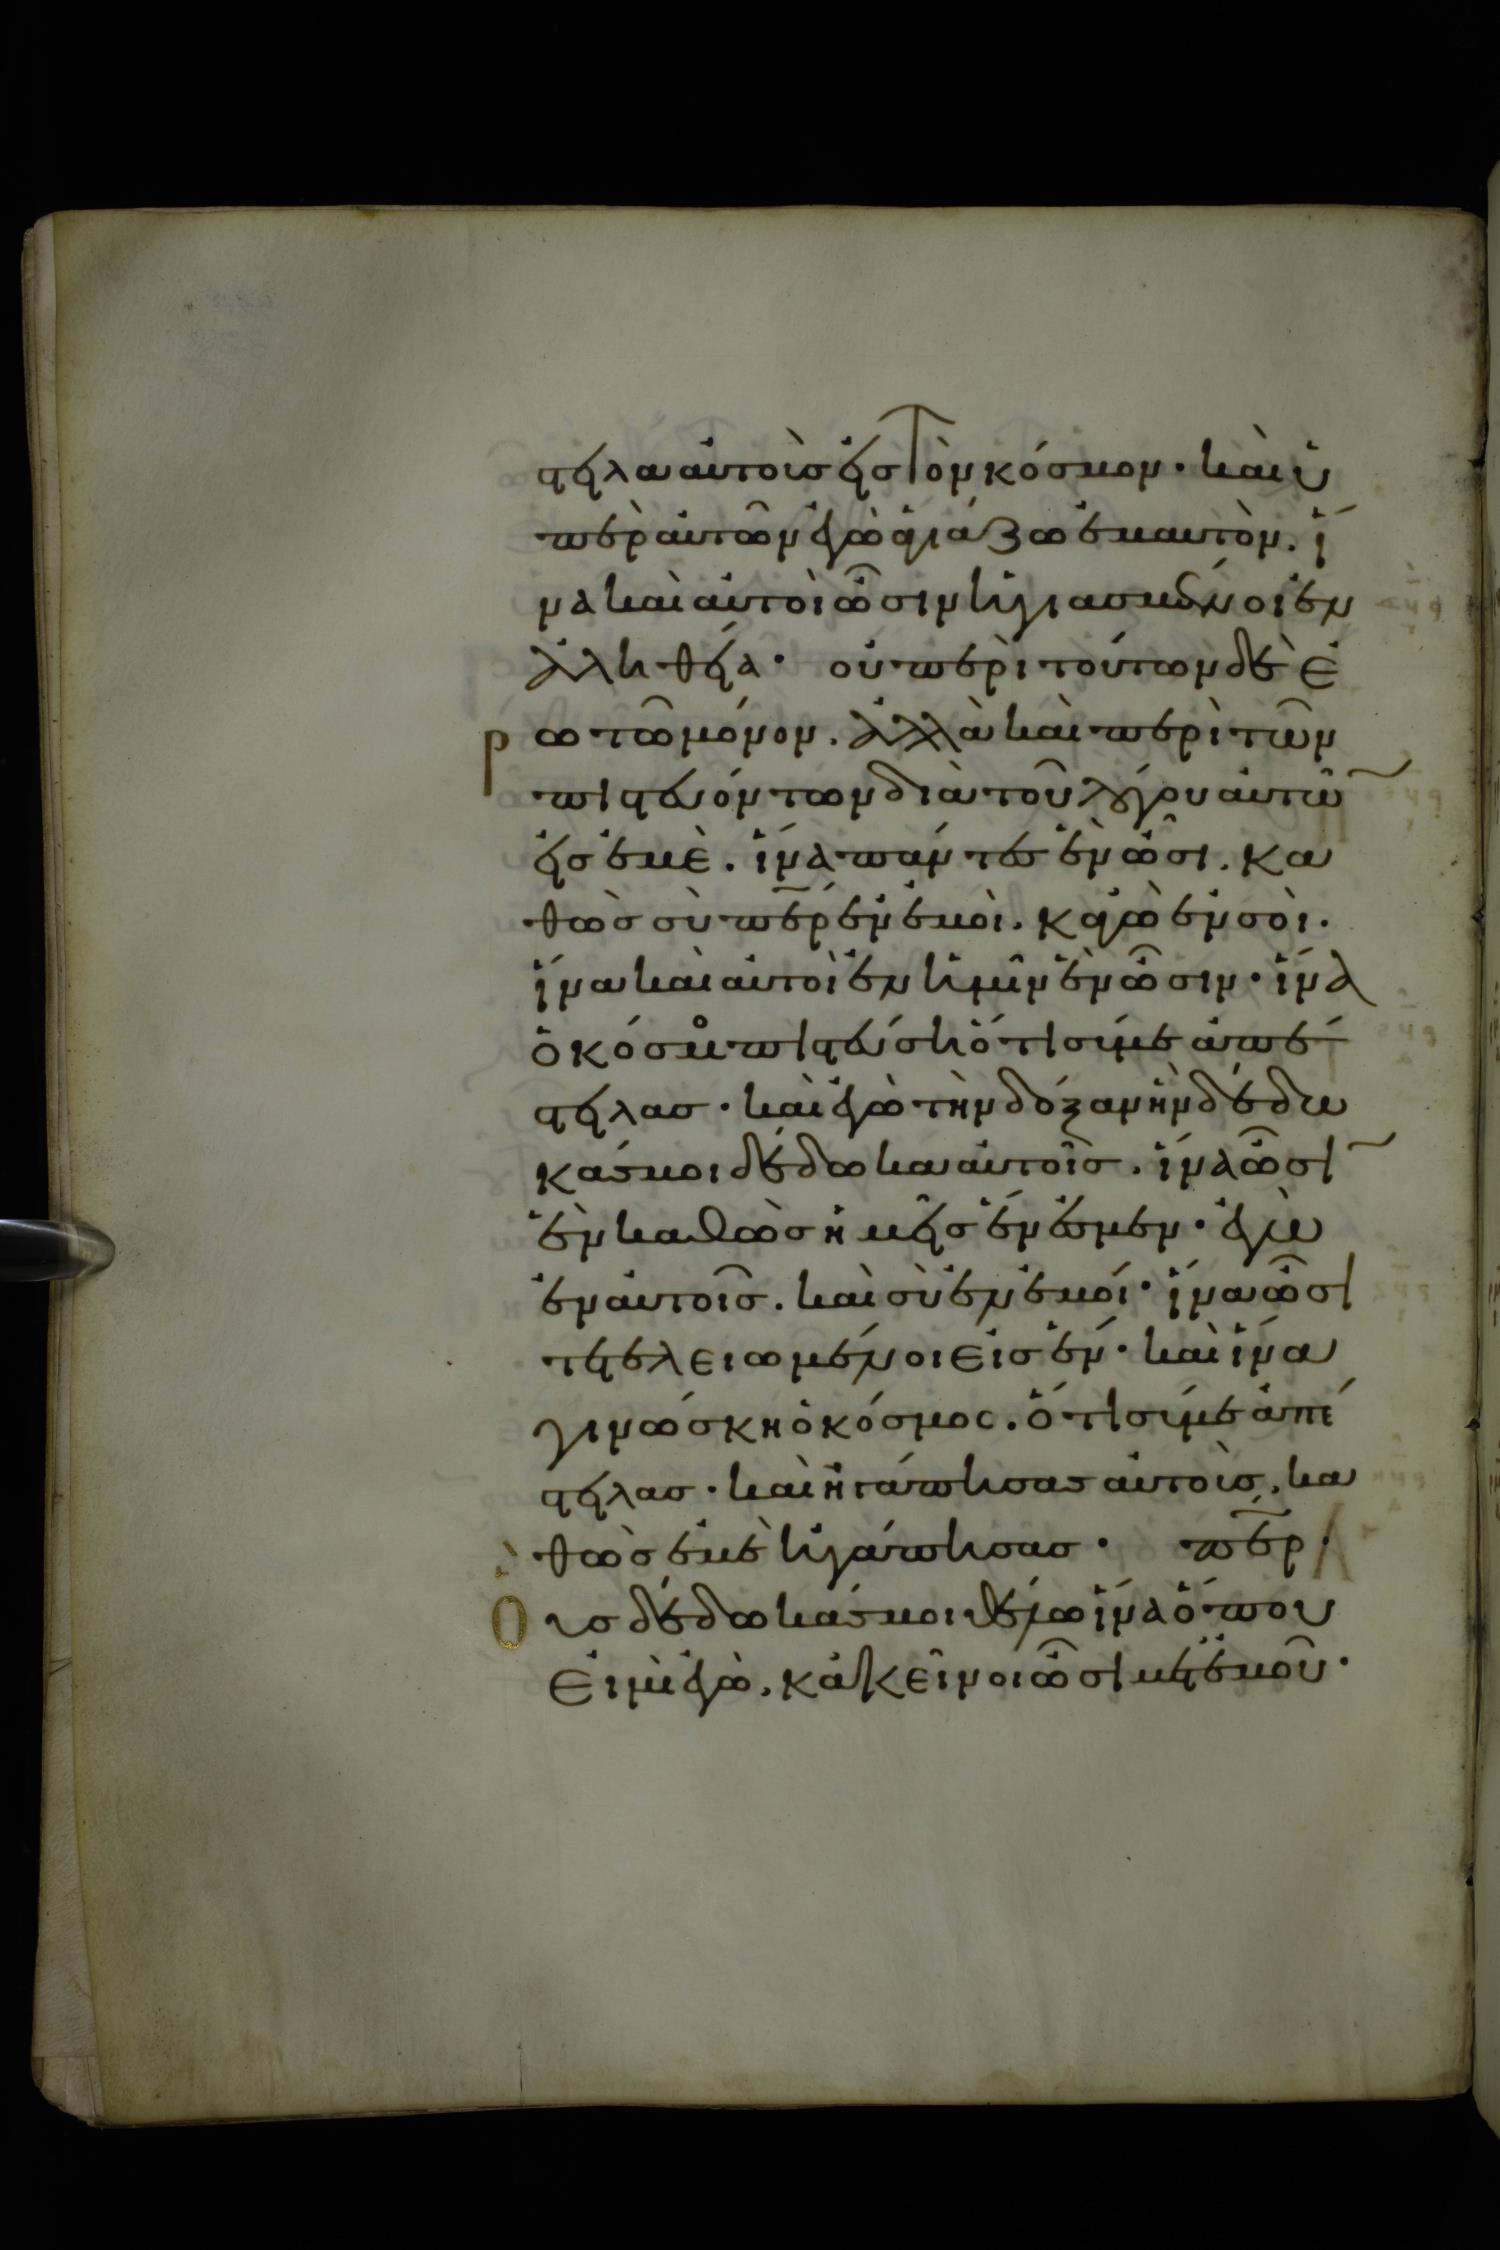 στειλα αὐτοὺς εἰς τὸν κόσμον· καὶ ὑ
πὲρ αὐτῶν ἐγὼ ἁγιάζω ἐμαυτὸν. ἵ
να καὶ αὐτοὶ ὦσιν ἡγιασμένοι ἐν
ἀληθεία· οὐ περὶ τούτων δὲ ἐ
ρωτῶ μόνον. ἀλλὰ καὶ περὶ τῶν
πιστευόντων διὰ τοῦ λόγου αὐτῶ
εἰς ἐμὲ. ἵνα πάντες ἓν ὦσι. κα
θὼς σὺ περ ἐν ἐμοὶ. κἀγὼ ἐν σοὶ.
ἵνα καὶ αὐτοὶ ἐν ἡμῖν ἓν ὦσιν· ἵνα
ὁ κόσμος πιστεύση ὅτι σύ με ἀπέ
στειλας· καὶ ἐγὼ τὴν δόξαν ἣν δέδω
κάς μοι δέδωκα αὐτοῖς. ἵνα ὦσι
ἓν καθὼς ἡμεῖς ἕν ἐσμεν· ἐγὼ
ἐν αὐτοῖς. καὶ σὺ ἐν ἐμοί· ἵνα ὦσι
τετελειωμένοι εἰς ἕν· καὶ ἵνα
γινώσκη ὁ κόσμος. ὅτι σύ με ἀπέ
στειλας· καὶ ἠγάπησας αὐτοὺς. κα
θὼς ἐμὲ ἠγάπησας· περ·
Οὓς δέδωκάς μοι θέλω ἵνα ὅπου
εἰμὶ ἐγὼ. κἀκεῖνοι ὦσι μετ ἐμοῦ·